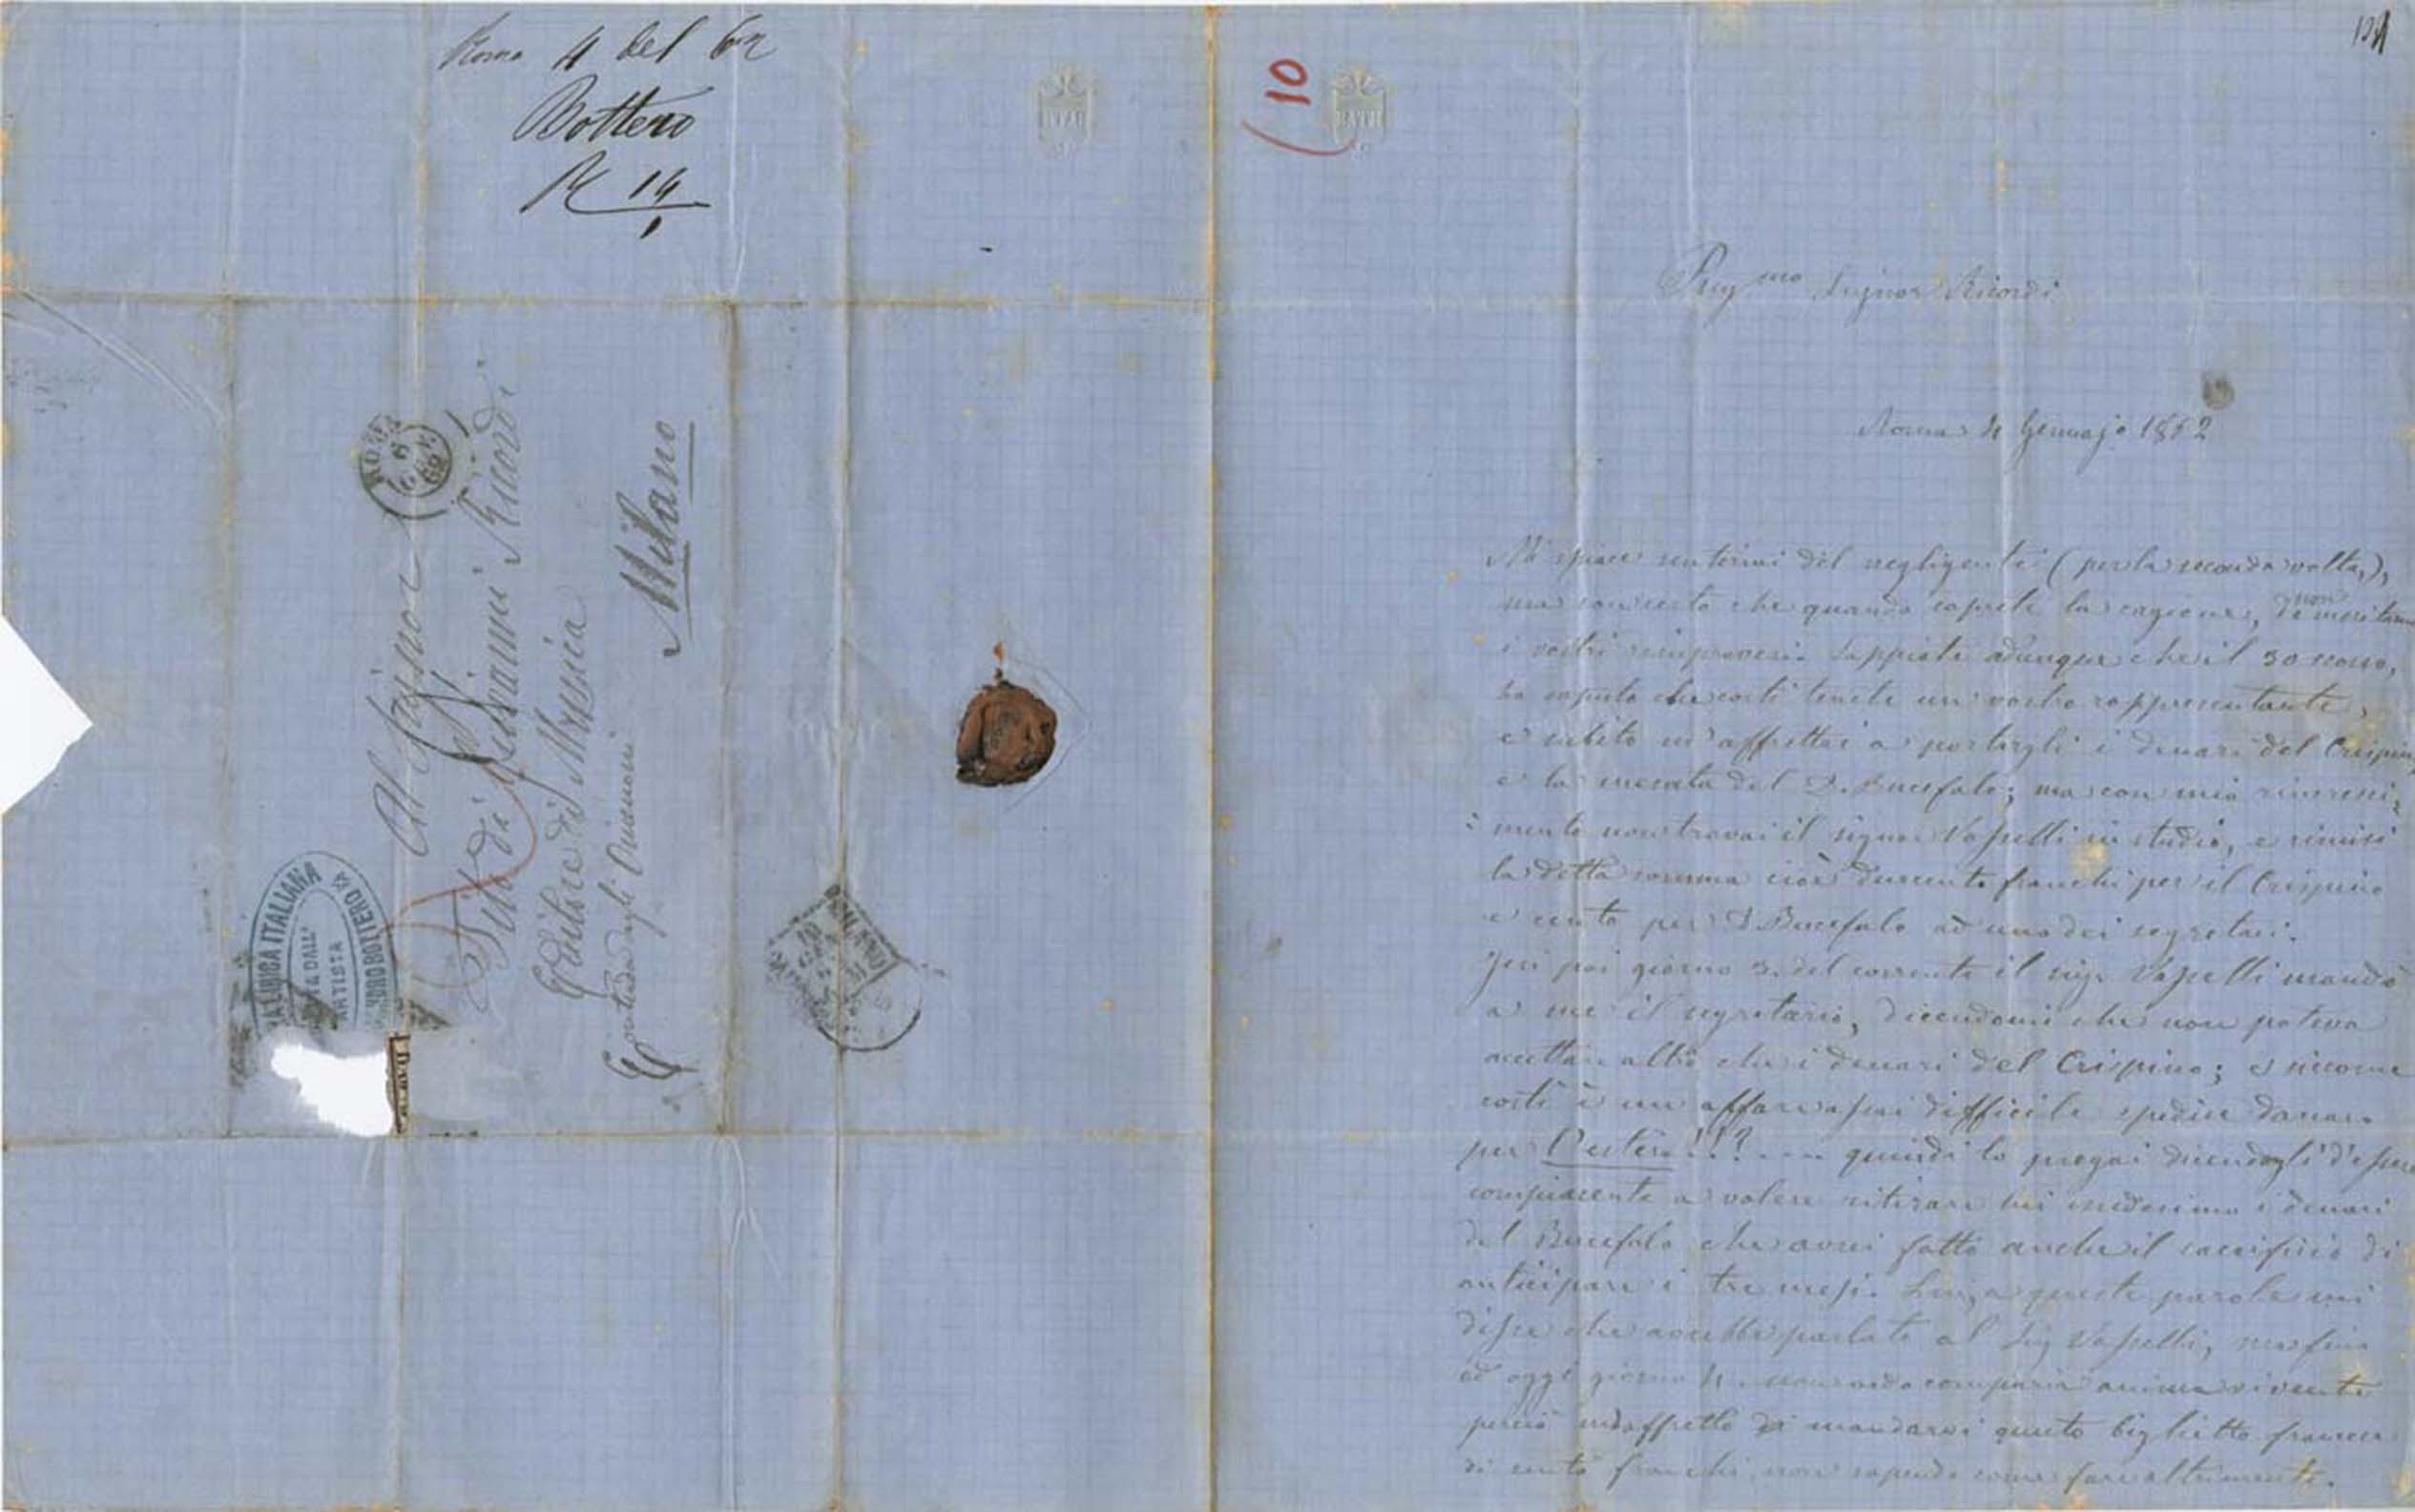 Roma 4 del 62
Bottero
R 14
1
BATH
10
BATH
ROMA
6
GEN
62
Al Signor
Tito di Giovanni Ricordi
Editore di Musica
Contrada degli Omenoni
Milano
LIRICA ITALIANA
DALL'
ARTISTA
BOTTERO
MILANO
10
GEN
Preg.mo Signor Ricordi
Roma 4 Gennajo 1862
Mi spiace sentirmi del negligente (per la seconda volta),
ma son certo che quando saprete la cagione, non
i vostri rimproveri. Sappiate adunque che il 30 scorso,
ho saputo che costì tenete un vostro rappresentante,
e subito m'affrettai a portargli i denari del Crispino
e la mesata del D. Bucefalo; ma con mio rincresci=
=mento non trovai il signor Vasselli in studio, e rimisi
la detta somma cioè duecento franchi per il Crispino
e cento per D Bucefalo ad uno dei segretari.
Jeri poi giorno 3. del corrente il sigr Vasselli mandò
a me il segretario, dicendomi che non poteva
accettare altro che i denari del Crispino; e siccome
costì è un affare assai difficile spedire danaro
per l'estero!!?.... quindi lo pregai dicendogli d'essere
compiacente a volere ritirare lui medesimo i denari
del Bucefalo che avrei fatto anche il sacrificio di
anticipare i tre mesi. Senza queste parole mi
disse che avrebbe parlato al Sig Vasselli, ma fino
ad oggi giorno 4. non vedo comparir anima vivente
perciò m'affretto di mandarvi questo biglietto francese
di cento franchi non sapendo come fare altrimenti.